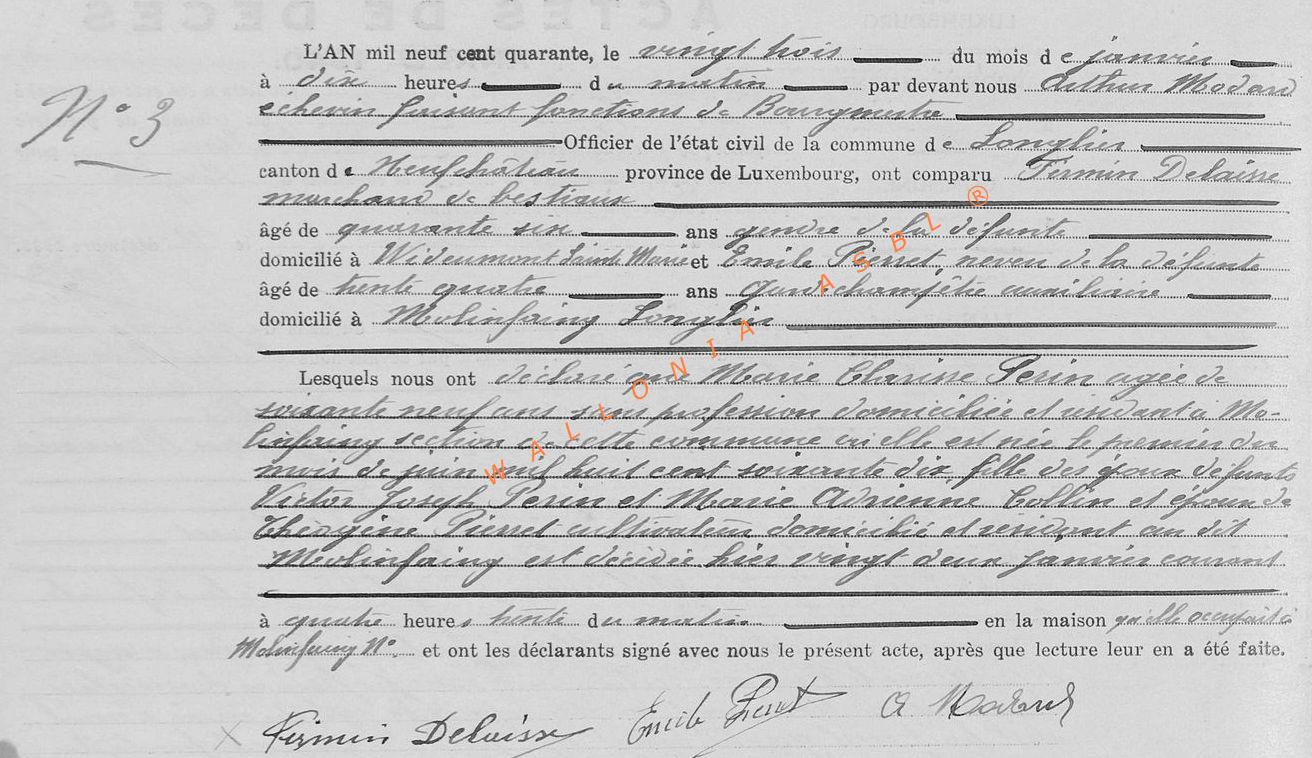 L'AN mil neuf cent quarante, le vingt trois du mois de janvier
à dix heures du matin par devant nous Arthur Modard
N° 3
échevin faisant fonctions de Bourgmestre
Officier de l'état civil de la commune de Longlier
canton de Neufchâteau province de Luxembourg, ont comparu Firmin Delaisse
marchand de bestiaux
âgé de quarante six ans gendre de la défunte
domicilié à Wideumont Sainte Marie et Emile Pierret, neveu de la défunte
âgé de trente quatre ans garde champêtre auxiliaire
domicilié à Molinfaing Longlier
Lesquels nous ont déclaré que Marie Clarisse Perin agée de
soixante neuf ans sans profession domiciliée et résidant à Mo-
linfaing section de cette commune où elle est née le premier du
mois de juin mil huit cent soixante dix, fille des époux défunts
Victor Joseph Perin et Marie Adrienne Collin et épouse de
Théogène Pierret cultivateur domicilié et résidant au dit
Molinfaing est décédée hier vingt deux janvier courant
à quatre heures trente du matin en la maison qu'elle occupait à
Molinfaing N° et ont les déclarants signé avec nous le présent acte, après que lecture leur en a été faite.
Firmin Delaisse Emile Pierret A Modard
WALLONIA ASBL ®